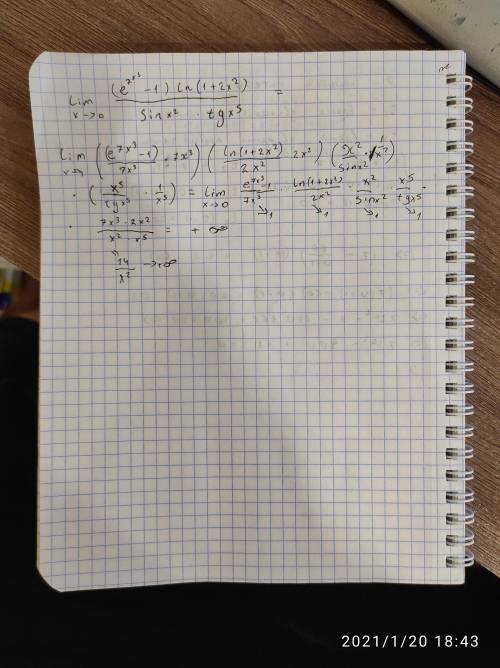 lim x→0 ((e^{7x³} - 1) ln(1+2x²)) / (sin x² · tg x⁵) =
lim x→0 ((e^{7x³} - 1)/(7x³) · 7x³) (ln(1+2x²)/(2x²) · 2x²) (x²/sin x² · 1/x²)
· (x⁵/tg x⁵ · 1/x⁵) = lim x→0 (e^{7x³} - 1)/(7x³) · ln(1+2x²)/(2x²) · x²/sin x² · x⁵/tg x⁵ ·
→1 →1 →1 →1
· (7x³ · 2x²)/(x² · x⁵) = +∞
14/x² → ∞
2021/1/20 18:43